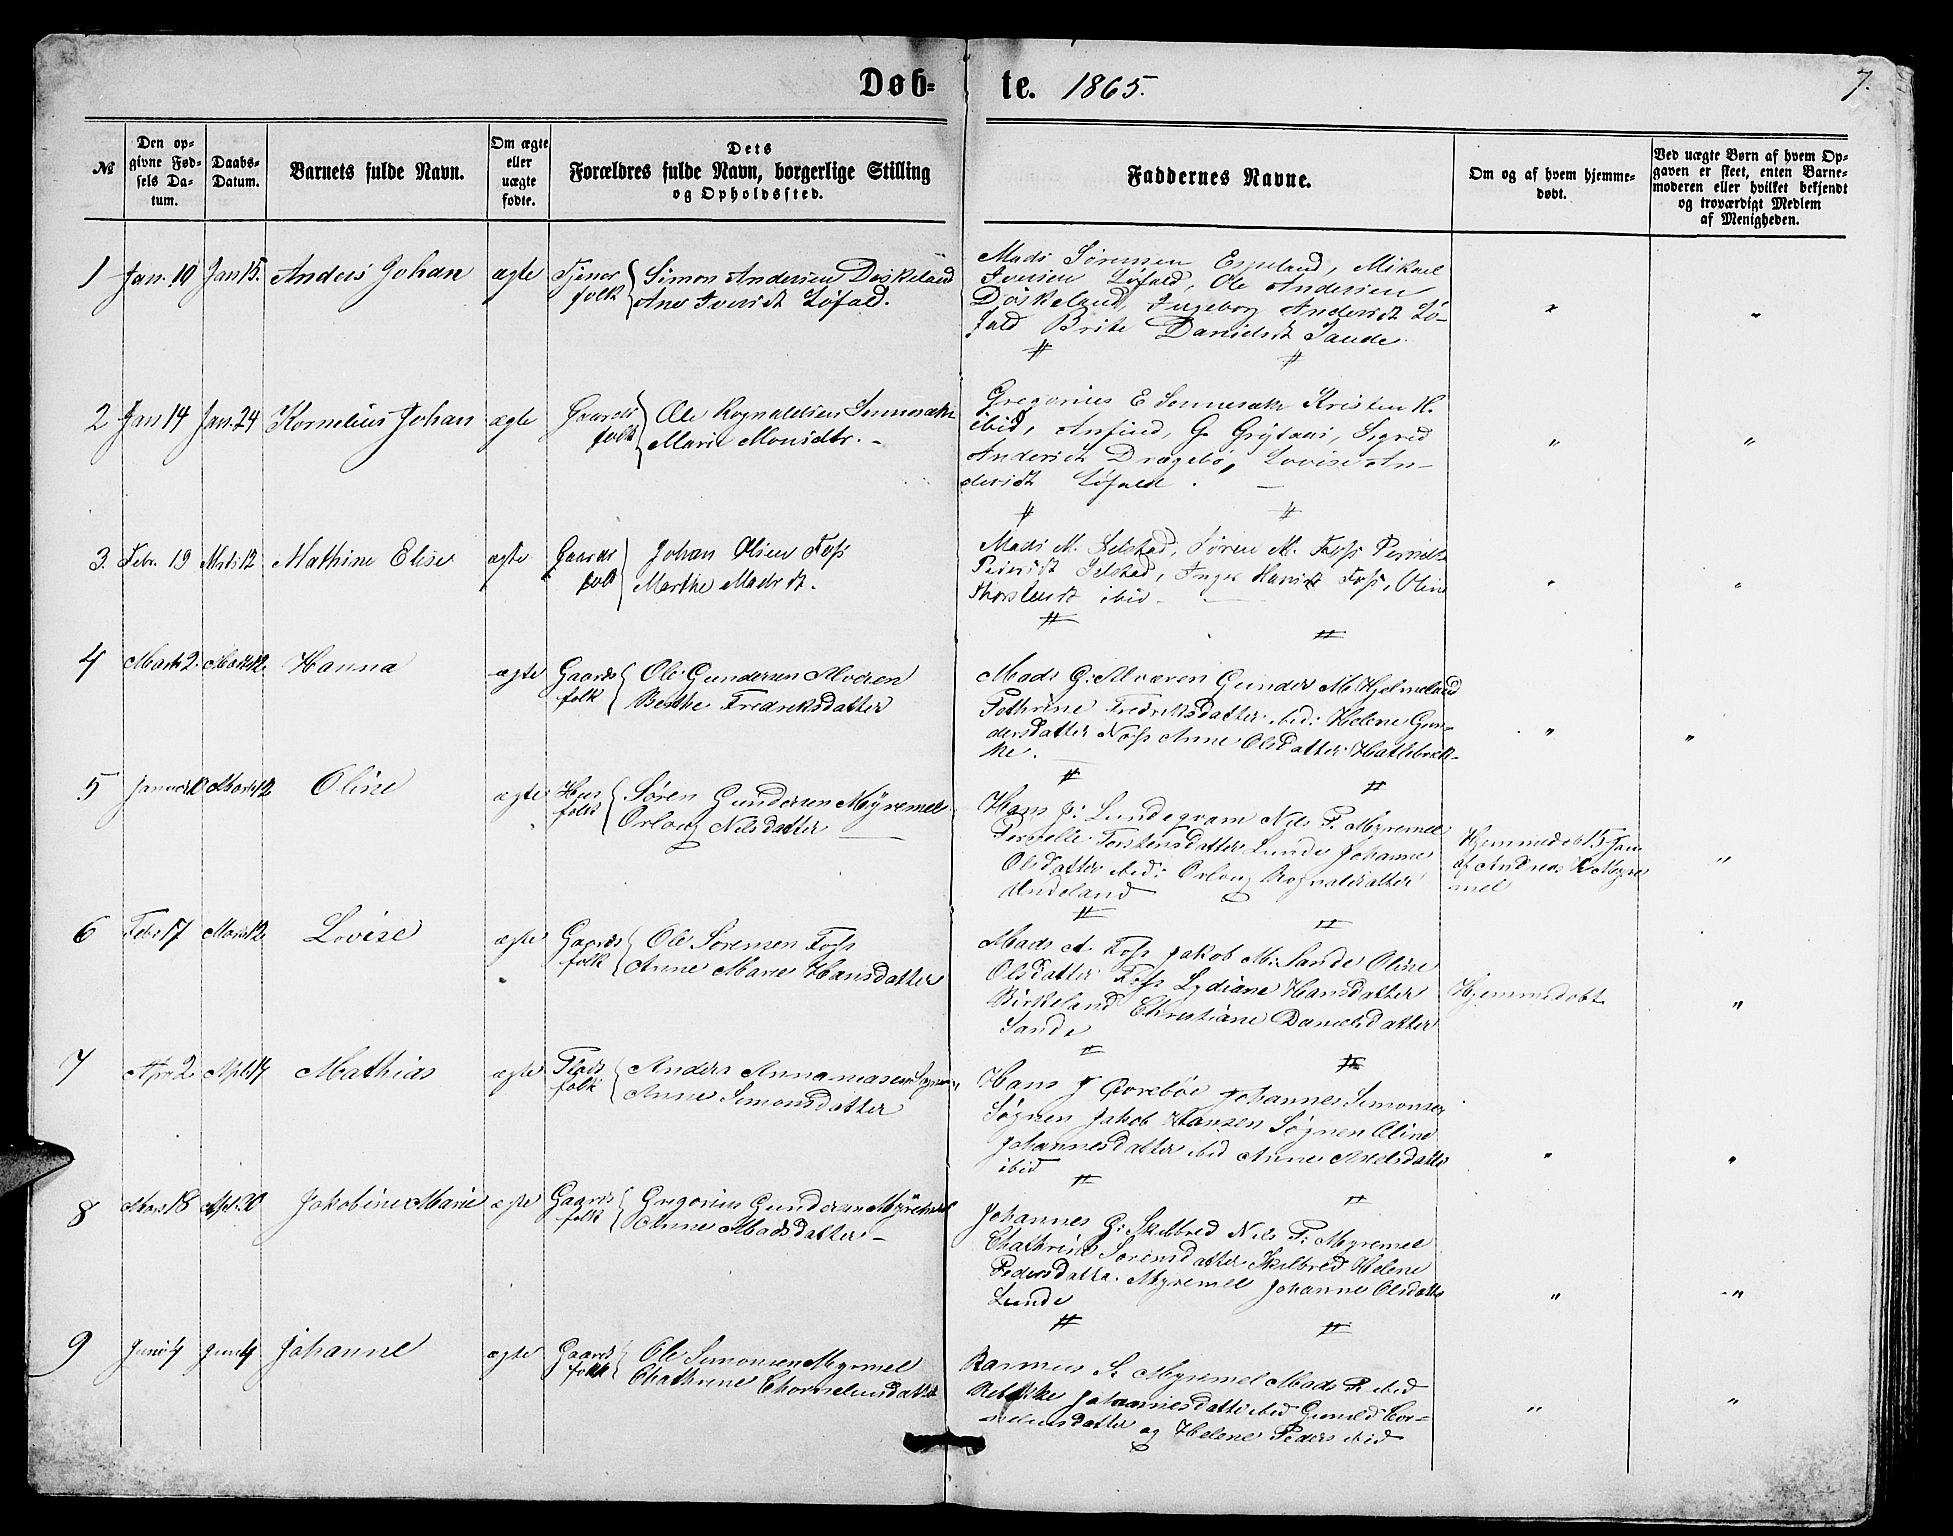 Døb-te. 1865.
7.
№
Den op-
givne Fød-
sels Da-
tum.
Daabs-
Datum.
Barnets fulde Navn.
Om ægte
eller
uægte
fødte.
Dets
Forældres fulde Navn, borgerlige Stilling
og Opholdssted.
Faddernes Navne.
Om og af hvem hjemme-
døbt.
Ved uægte Børn af hvem Op-
gaven er skeet, enten Barne-
moderen eller hvilket bekjendt
og troværdigt Medlem
af Menigheden.
1 Jan. 10 Jan 15. Anders Johan ægte Tjener
folk Simon Andersen Døskeland
Ane Iversdt Løfald.
Mads Sørensen Espeland, Mikael
Iversen Løfald, Ole Andersen
Døskeland, Ingeborg Andersdt Lø-
fald Brite Danielsdt Sande.
" "
2 Jan 14 Jan. 24 Kornelius Johan ægte Gaards
folk Ole Rognaldsen
Marie Monsdtr. -
Gregorius E Kristen H.
ibid, Anfind, G Grytaas, Sigrid
Andersdt Dragebø, Lovise An-
dersdt Løfald.
" "
3. Febr. 19 Mrts 12 Mathine Elise ægte Gaards
folk Johan Olsen Foss
Marthe Madsdt.
Mads M. Selstad, Søren M. Foss
Selstad, Inger Hansdt Foss, Oline
Thorstensdt ibid -
" "
4 Marts 2. Marts 12. Hanna ægte Gaards
folk Ole Gundersen Alværen
Berthe Fredriksdatter
Mads G: Alværen Gunder M. Hjelmeland
Fredriksdatter ibid: Helene Gun-
dersdatter Anne Olsdatter Hatlebrek-
ke.
" "
5 Januar 10 Marts 12 Oline ægte Hus
folk Søren Gundersen Myremel
Orloug Nilsdatter
Hans J: Lundegram Nils P. Myremel
Pernelle Torstensdatter Lunde Johanne
Olsdatter ibid: Orloug Rognaldsdatter
Undeland
Hjemmedøbt 15 Jan
af Andreas Myre
mel
"
6 Febr 17 Marts 12. Lovise ægte Gaards
folk Ole Sørensen Foss
Anne Marie Hansdatter
Mads A. Foss Jakob M: Sande Oline
Olsdatter Foss Lydiane Hansdatter
Birkeland Christiane Danielsdatter
Sande
Hjemmedøbt
"
7 Apr 2. Apl. 17 Mathias ægte
folk Anders Søgnen
Anne Simonsdatter
Hans J Johannes Simonsen
Søgnen Jakob Hansen Søgnen Oline
Johannesdatter ibid Anne Akselsdatter
ibid
" "
8 Mars 18 Apl. 30 Jakobine Marie ægte Gaards
folk Gregorius Gundersen Myremel
Anne Madsdatter -
Johannes G: Skilbred Nils P: Myremel
Chathrine Sørensdatter Skilbred Helene
Pedersdatter Myremel Johanne Olsdatter
Lunde
" "
9 Juni 4 Johanne ægte Gaards
folk Ole Simonsen Myrmel
Chathrine Chorneliusdatter
Rasmus S. Myremel Mads P. ibid
Rebekke Johannesdatter ibid Gunild Cor-
neliusdatter og Helene Peders ibid
" "